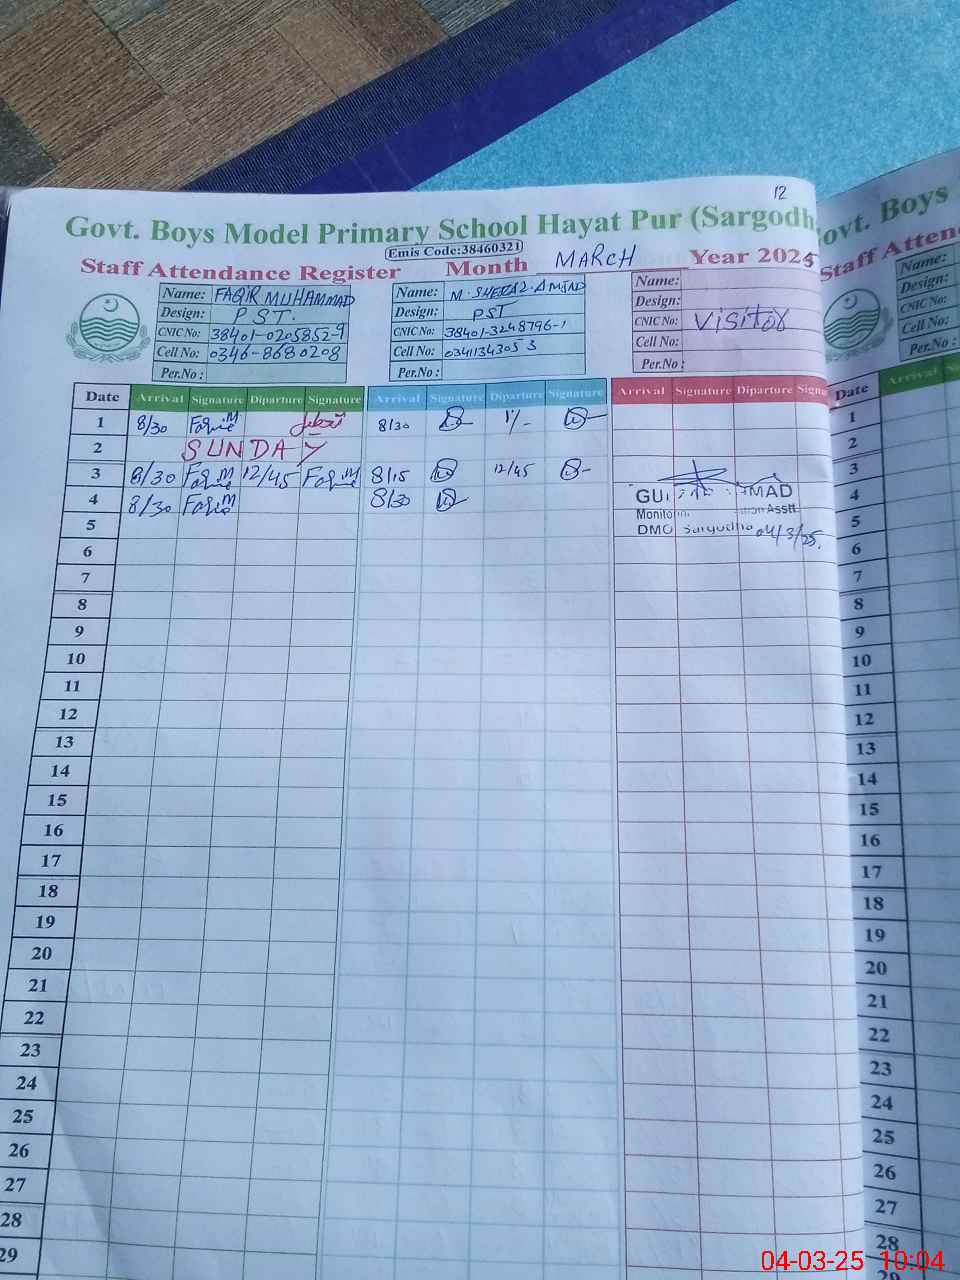 12
Govt. Boys Model Primary School Hayat Pur (Sargodh
Emis Code:38460321
Staff Attendance Register Month MARCH Year 2025
Name: FAQIR MUHAMMAD
Design: PST.
CNIC No: 38401-0205852-9
Cell No: 0346-8680208
Per.No :
Name: M. SHERAZ AMJAD
Design: PST
CNIC No: 38401-3248796-1
Cell No: 03411343053
Per.No :
Name:
Design:
CNIC No: Visitor
Cell No:
Per.No :
Date Arrival Signature Diparture Signature Arrival Signature Diparture Signature Arrival Signature Diparture Signat
1 8/30 8/30 1/-
2 SUNDAY
3 8/30 12/45 8/15 12/45
4 8/30 8/30
GU MAD
Monito Asstt
DMO Sargodha 04/3/25.
5
6
7
8
9
10
11
12
13
14
15
16
17
18
19
20
21
22
23
24
25
26
27
28
29
ovt. Boys
Staff Atten
Name:
Design:
CNIC No:
Cell No:
Per.No :
Date Arrival
1
2
3
4
5
6
7
8
9
10
11
12
13
14
15
16
17
18
19
20
21
22
23
24
25
26
27
28
29
04-03-25 10:04